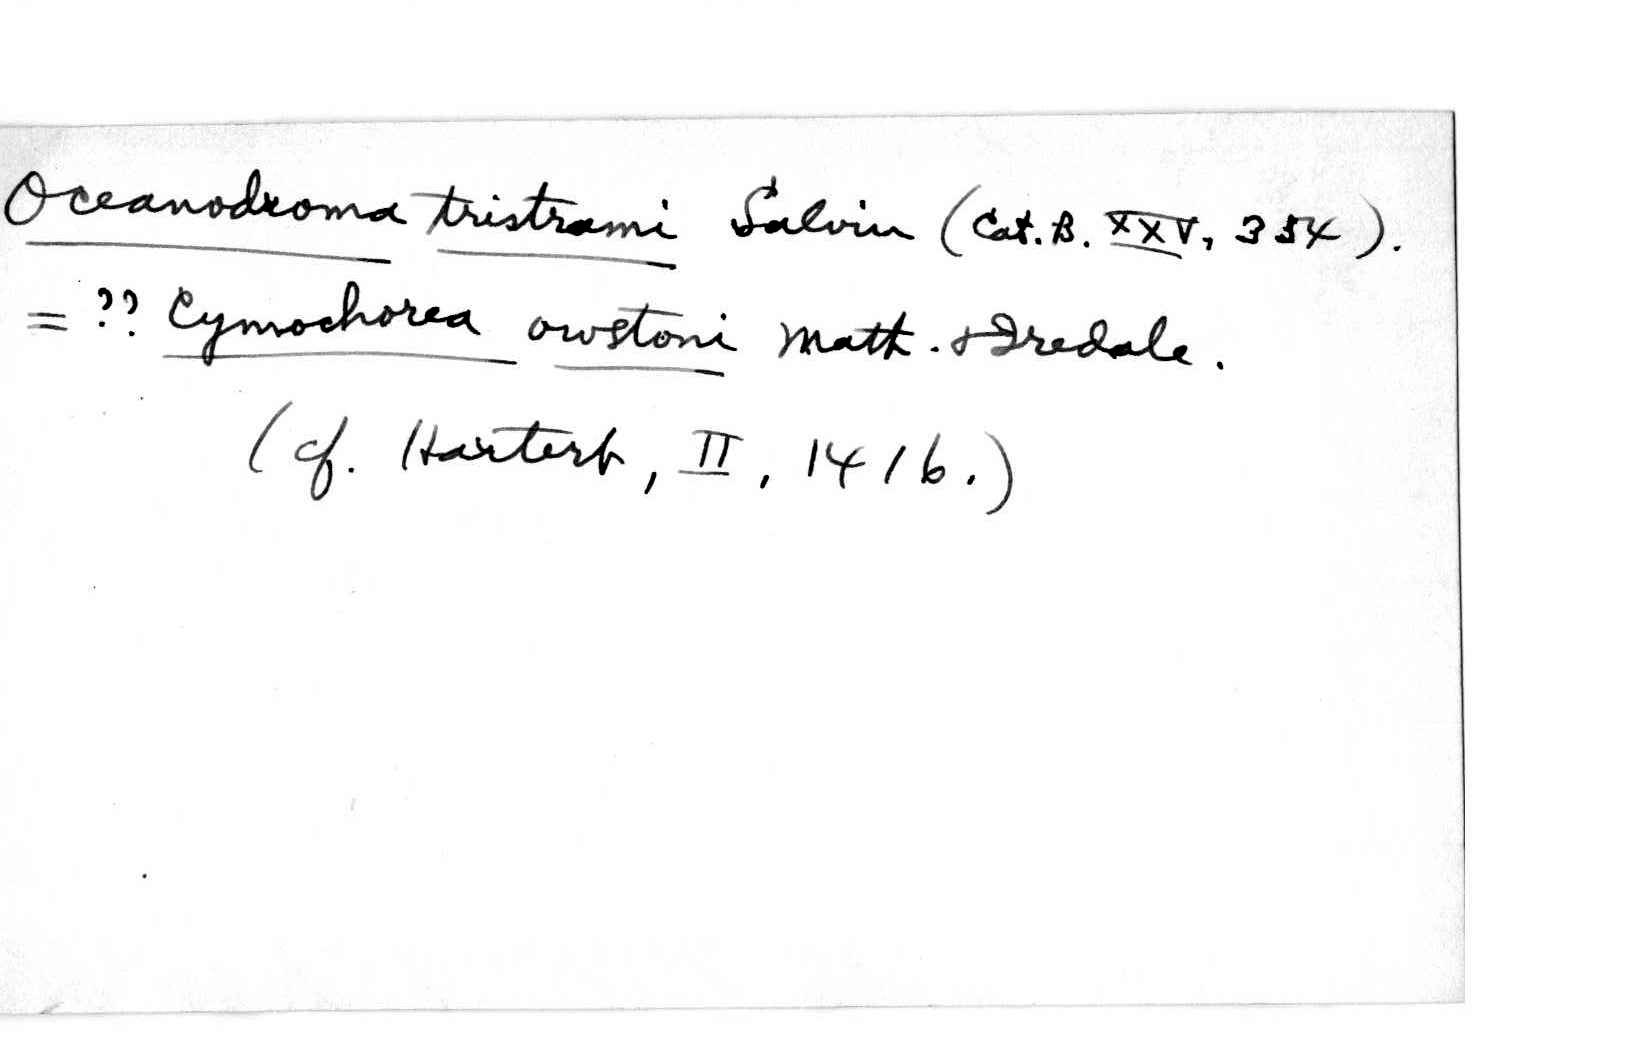 Oceanodroma tristrami Salvin (Cat. B. XXV, 354).
= ?? Cymochorea owstoni Math. & Iredale.
(cf. Hartert, II, 1416.)